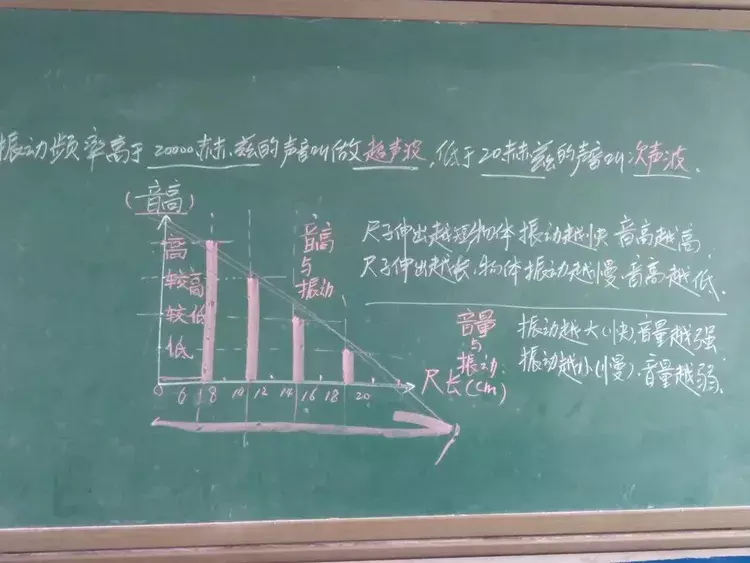 振动频率高于20000赫兹的声音叫做超声波,低于20赫兹的声音叫次声波.
(音高)
高
较高
较低
低
音高
与
振动
0 6 8 10 12 14 16 18 20
尺长(cm)
尺子伸出越短物体振动越快 音高越高.
尺子伸出越长,物体振动越慢,音高越低.
音量
与
振动.
振动越大(快),音量越强
振动越小(慢).音量越弱.